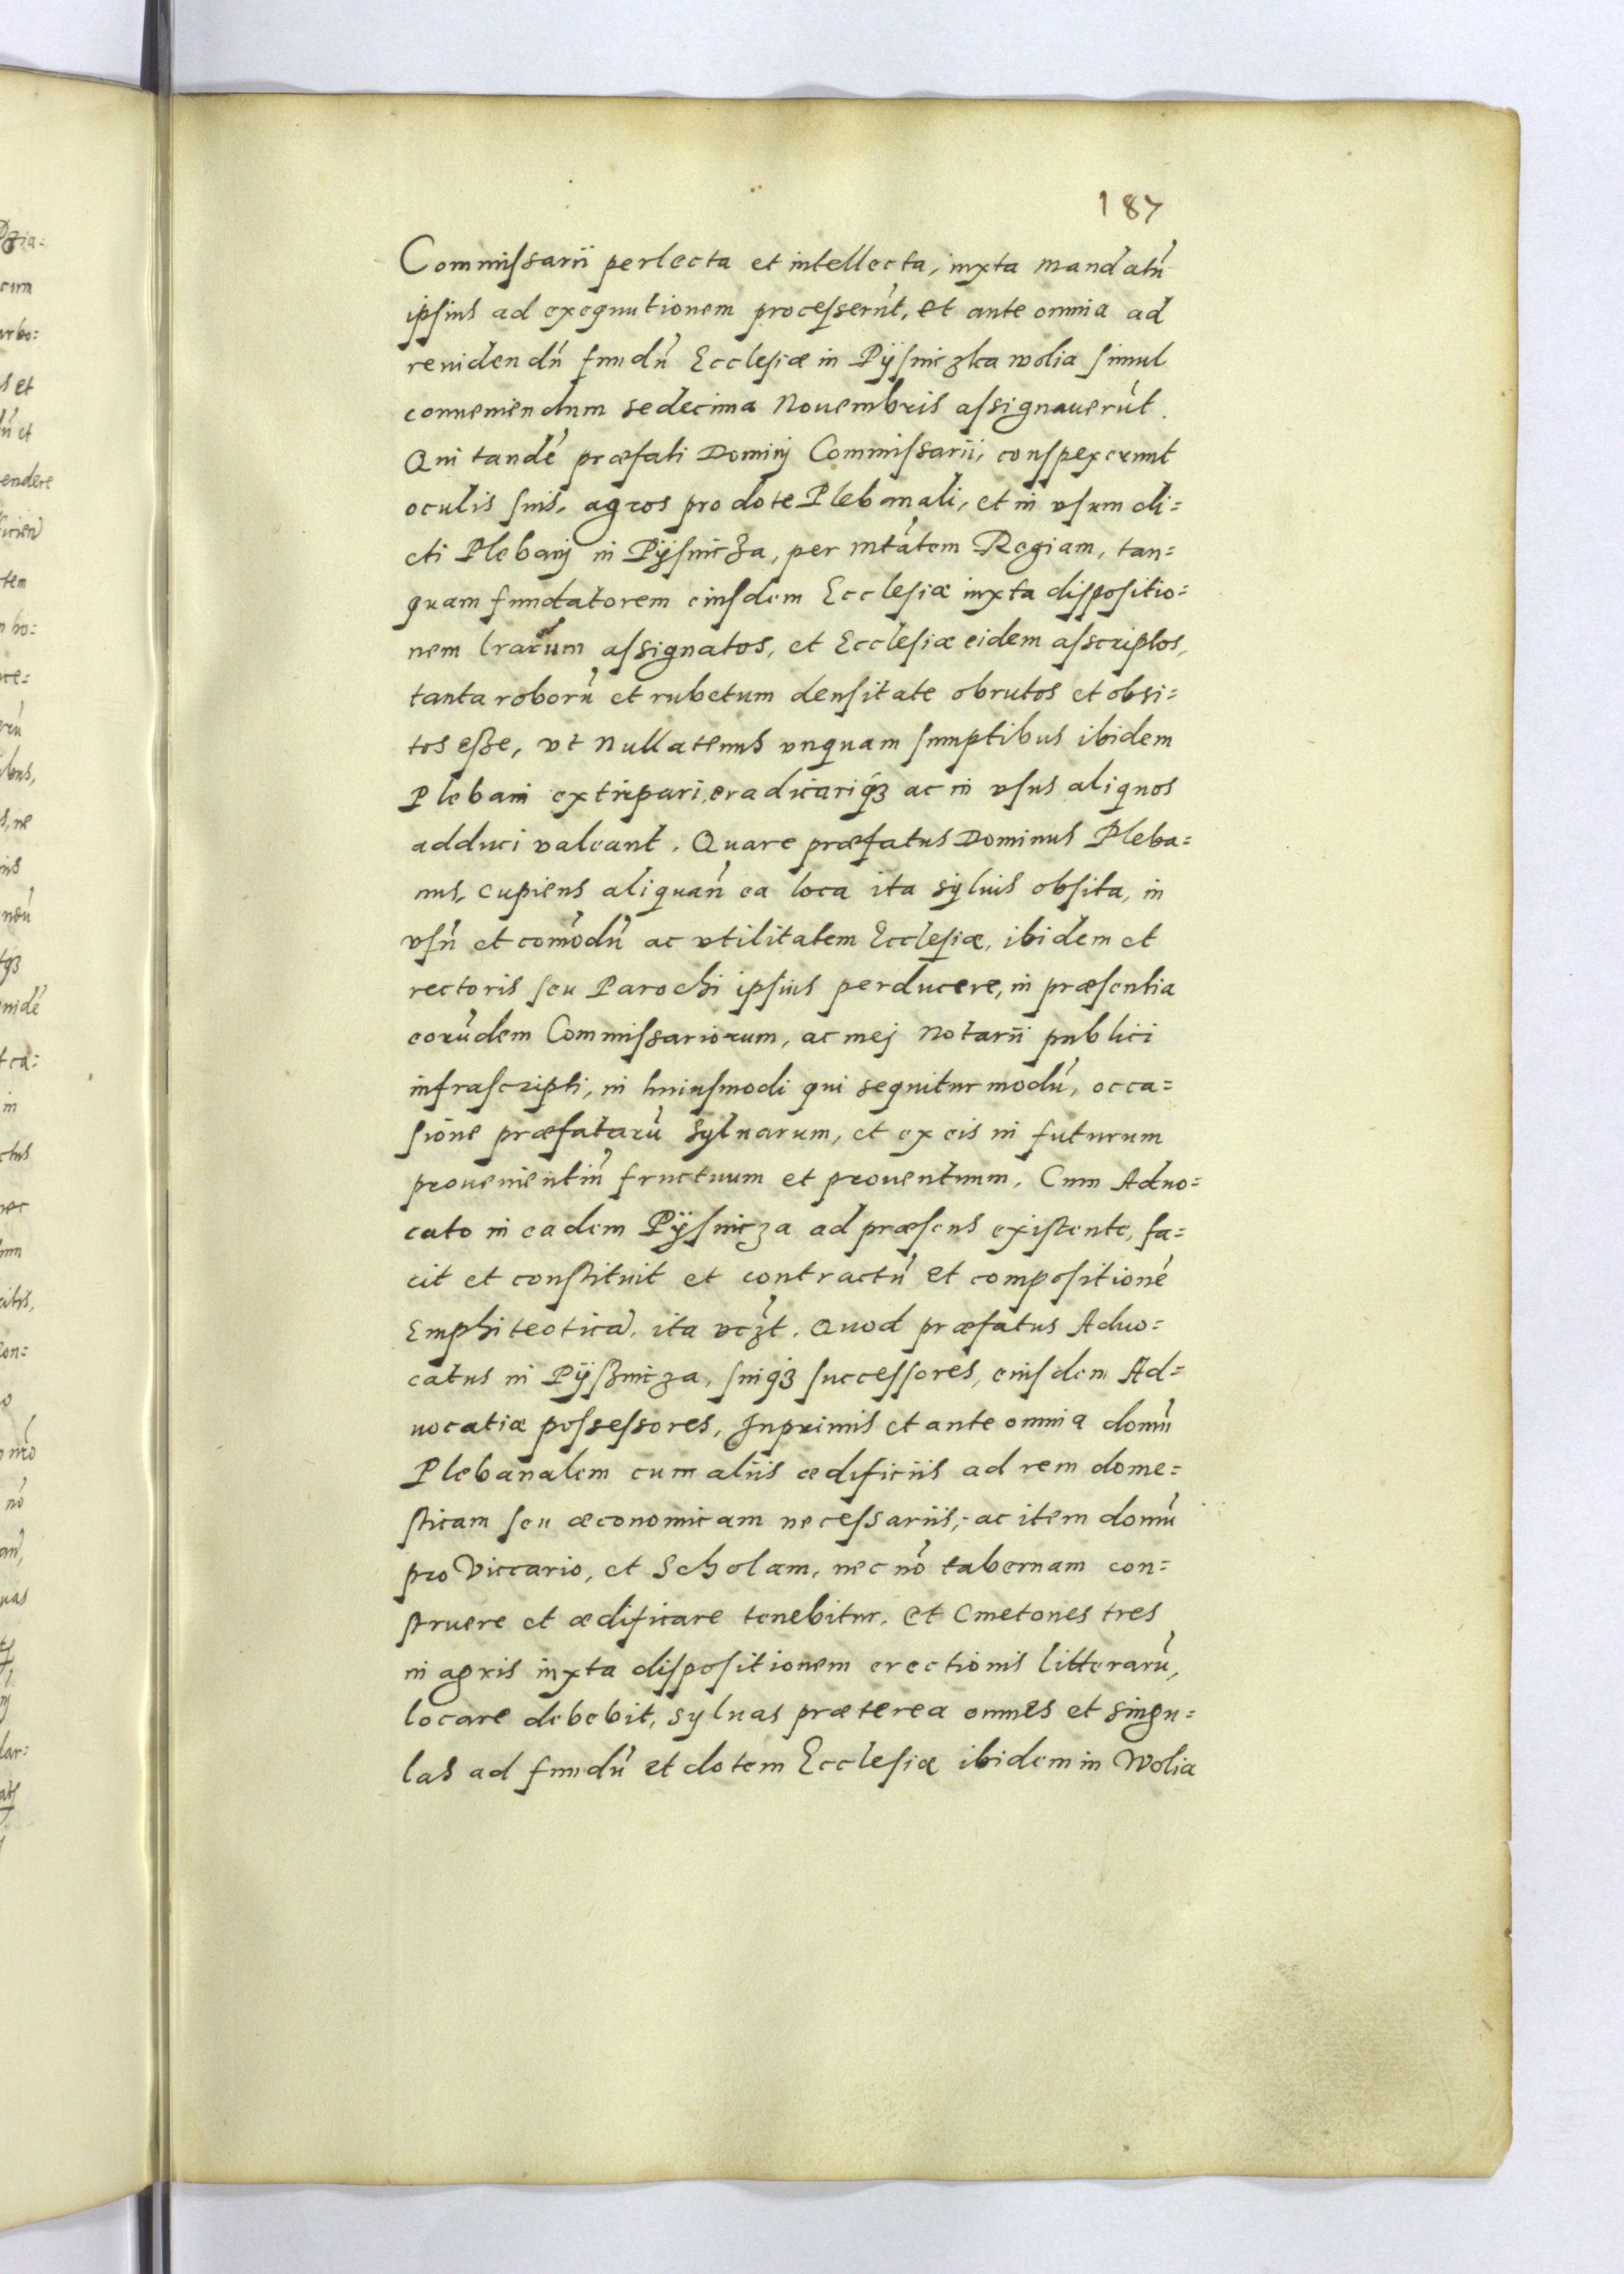 187
Commiſsarii perlecta et intellecta, iuxta mandatũ
ipſius ad exequutionem proceſserũt, et ante omnia ad
reuidendũ fundũ Eccleſiæ in Pÿſniczka wolia ſimul
conueniendum sedecima Nouembris aſsignauerũt.
Qui tandẽ præfati Dominj Commiſsarii, conſpexerunt
oculis ſuis, agros pro dote Plebanali, et in vſum di=
cti Plebanj in Pÿſnicza, per Mtãtem Regiam, tan=
quam fundatorem eiuſdem Eccleſiæ iuxta diſpoſitio=
nem lrarum aſsignatos, et Eccleſiæ eidem aſscriptos,
tanta roborũ et rubetum denſitate obrutos et obsi=
tos eſze, vt Nullatenus vnquam ſumptibus ibidem
Plebani extirpari, eradicariq́ꝫ ac in vſus aliquos
adduci valeant. Quare præfatus Dominus Pleba=
nus, cupiens aliquañ ea loca ita sylvis obſita, in
vſũ et com̃odũ ac vtilitatem Eccleſiæ, ibidem et
rectoris ſeu Parochi ipſius perducere, in præſentia
eorũdem Commiſsariorum, ac mej Notarii publici
infraſcripti, in huiuſmodi qui sequitur modũ, occa=
ſione præfatarũ Syluarum, et ex eis in futurum
prouenientiũ fructuum et prouentuum. Cum Aduo=
cato in eadem Pÿſnicza ad præſens exiſtente, fa=
cit et conſtituit et contractũ et compoſitionẽ
Emphiteoticã, ita vcꝫt. Quod præfatus Aduo=
catus in Pÿſznicza, ſuiq́ꝫ ſucceſſores, eiuſdem Ad=
uocatiæ poſseſsores, Inprimis et ante omnia domũ
Plebanalem cum aliis ædificiis ad rem dome=
ſticam ſeu æconomicam neceſsariis, ac item domũ
pro Viccario, et Scholam, nec nõ tabernam con=
ſtruere et ædificare tenebitur. Et Cmetones tres
in agris iuxta diſpoſitionem erectionis litterarũ,
locare debebit, syluas præterea omnes et singu=
las ad fundũ et dotem Eccleſiæ ibidem in Wolia